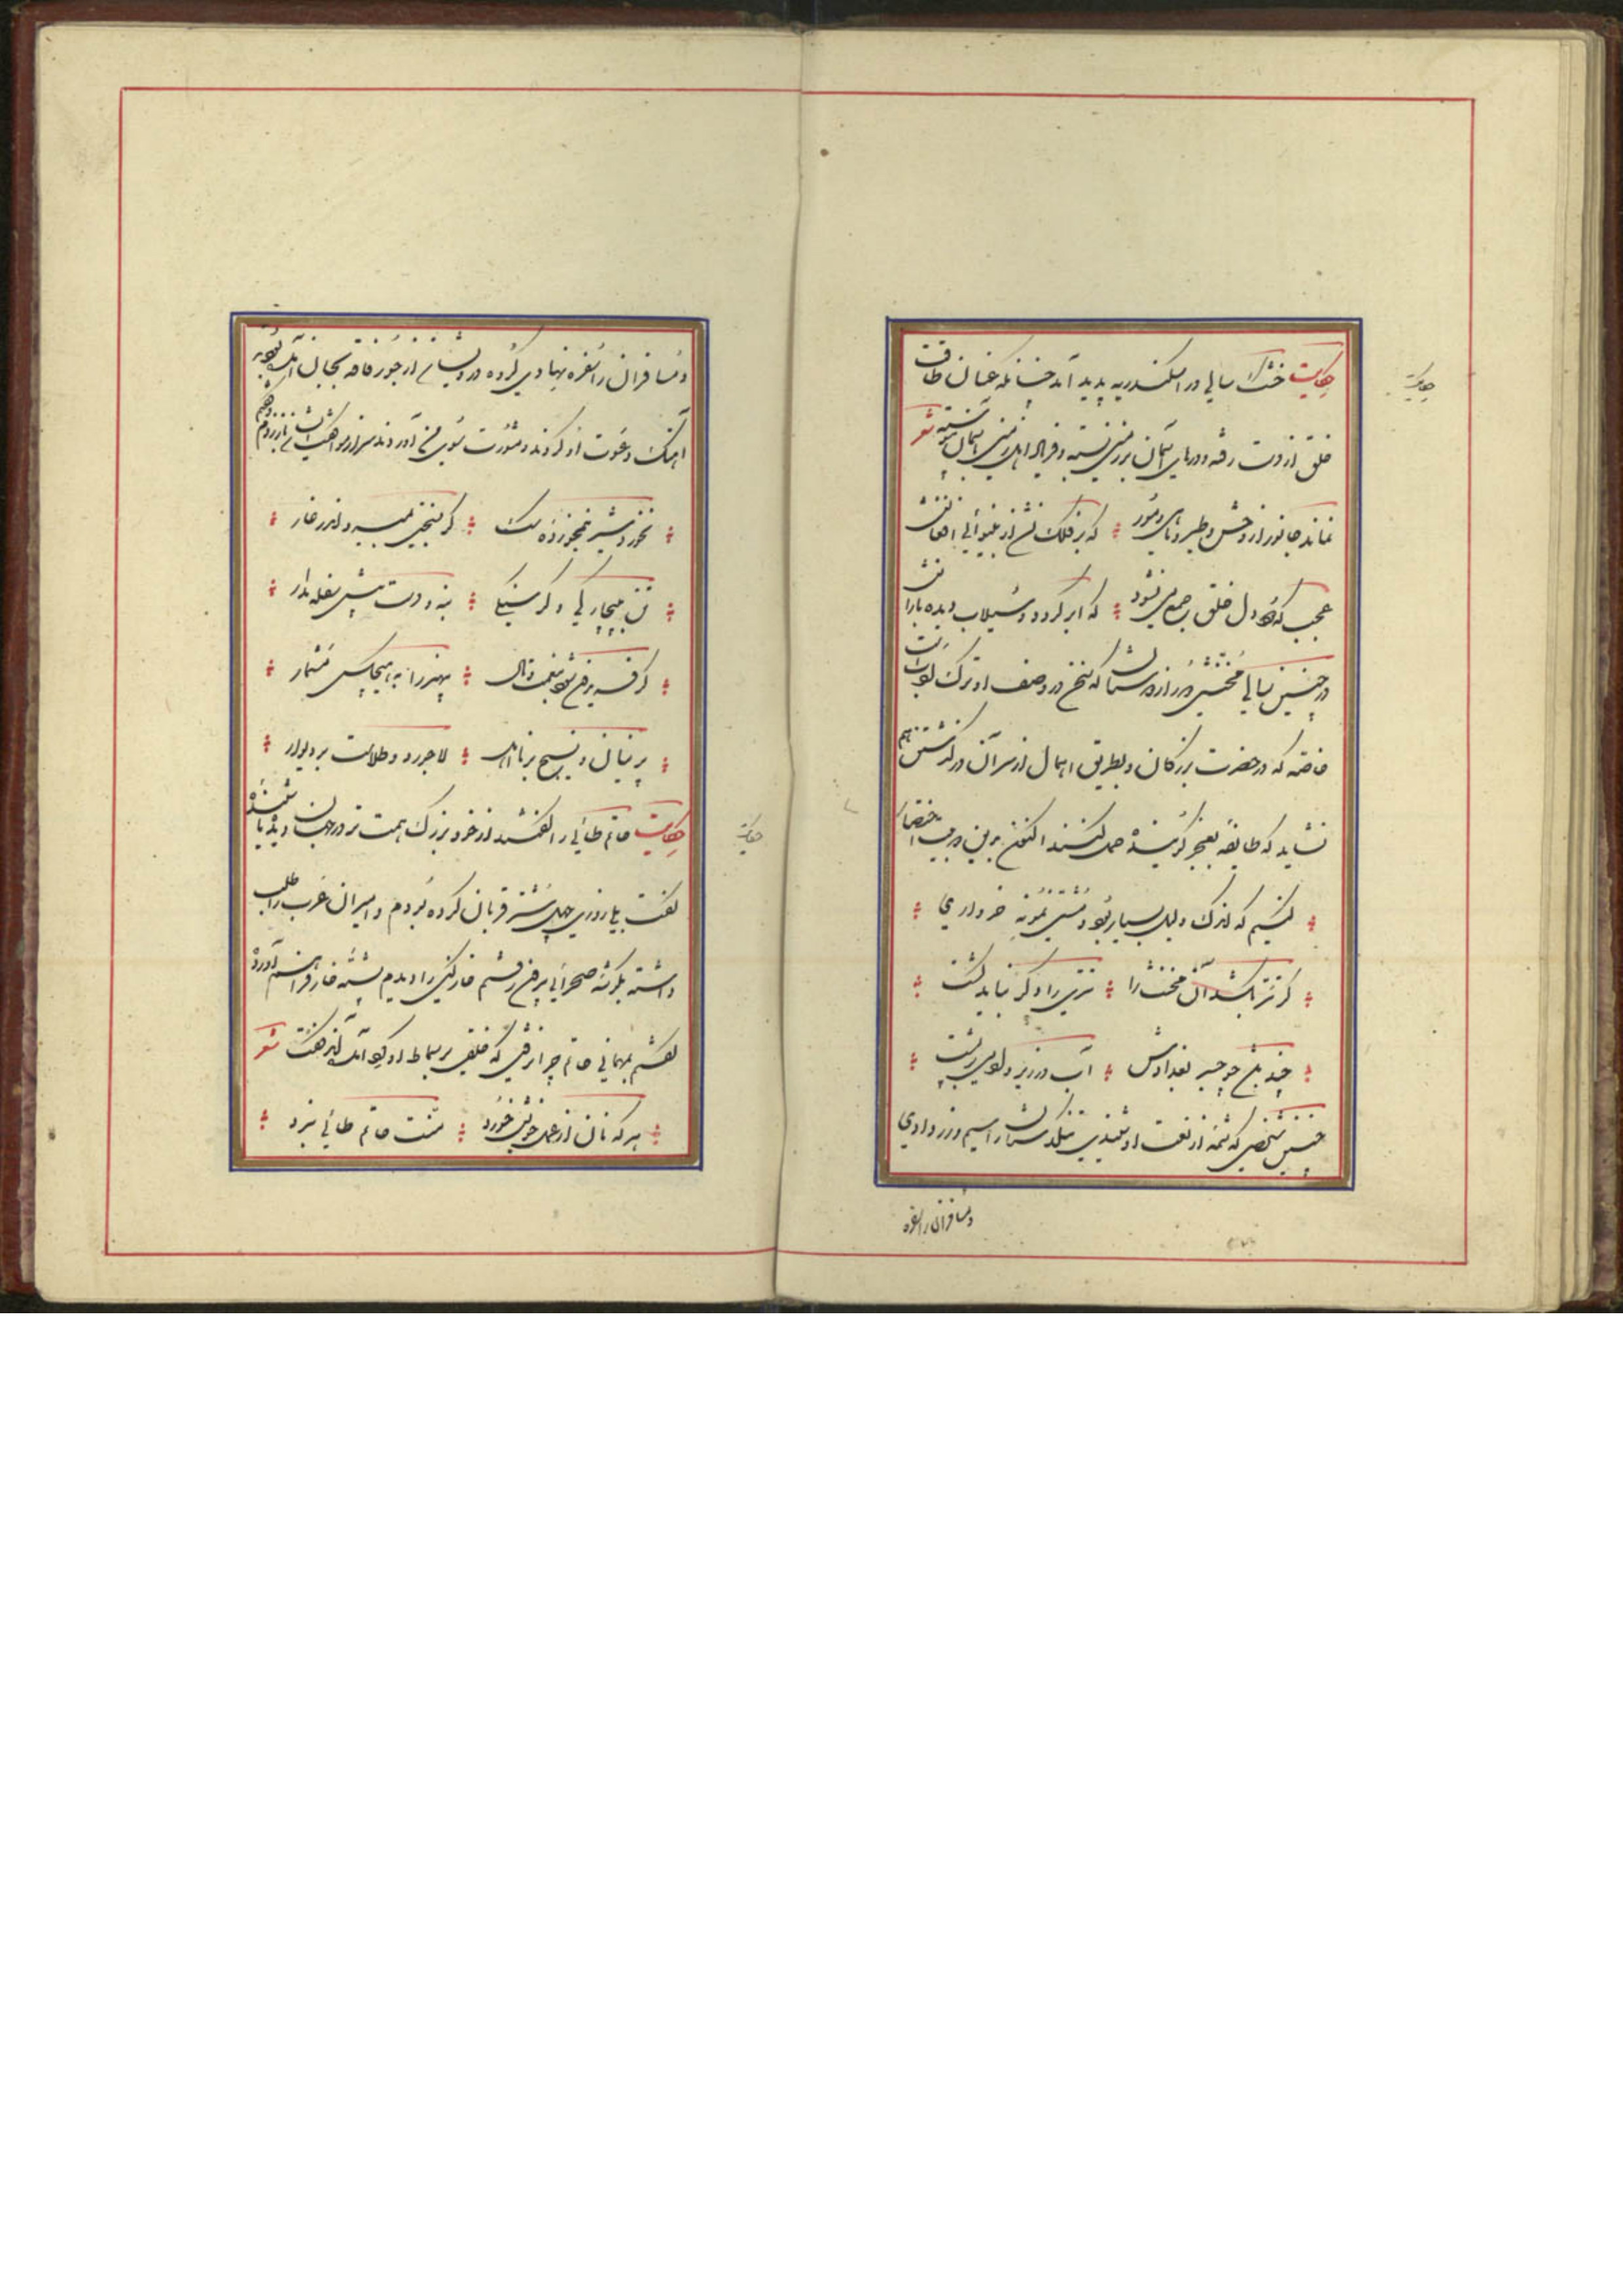 حکایت خشک سالی در اسکندریه پدید آمد چنانکه عنان طاقت
خلق از دست رفته و درهای آسمان بر زمین بسته و فریاد اهل زمین بآسمان پیوسته شعر
نماند جانور از وحش و طیر و ماهی و مور که بر فلک نشد از بینوائی افغانش
عجب که دود دل خلق جمع می نشود که ابر گردد و سیلاب دیده بارانش
در چنین سالی مخنثی دور از دوستان که سخن در وصف او ترک ادبست
خاصه که در حضرت بزرگان و بطریق اهمال از سر آن در گذشتن هم
نشاید که طایفه بعجز گوینده حمل کنند اکنون برین دو بیت اختصار
کنیم که اندک دلیل بسیار بود و مشتی نمونه خرواری
گر تتر بکشد آن مخنث را تتری را دگر نباید کشت
چند باشد چو جسر بغدادش آب در زیر و آدمی در پشت
چنین شخصی که شمه از نعت او شنیدی تنگدستان را سیم و زر دادی
و مسافران را سفره
حکایت
و مسافران را سفره نهادی گروه درویشان از جور فاقه بجان آمده بودند
آهنگ دعوت او کردند و مشورت بسوی من آوردند سر از موافقت ایشان باز زدم و گفتم
نخورد شیر نیمخورده سگ گر بسختی بمیرد اندر غار
تن ببیچارگی و گرسنگی بنه و دست پیش سفله مدار
گر فریدون شود بنعمت و مال بیهنر را به هیچکس مشمار
پرنیان و نسیج بر نااهل لاجورد و طلاست بر دیوار
حکایت حاتم طائی را گفتند از خود بزرگ همت تر در جهان دیده یا شنیده
گفت بلی روزی چهل شتر قربان کرده بودم و امیران عرب را طلب
داشته بگوشه صحرائی برون رفتم خارکنی را دیدم پشته خار فراهم آورده
گفتم بمهمانی حاتم چرا نروی که خلقی بر سماط او گرد آمده اند گفت شعر
هر که نان از عمل خویش خورد منت حاتم طائی نبرد
حکایت